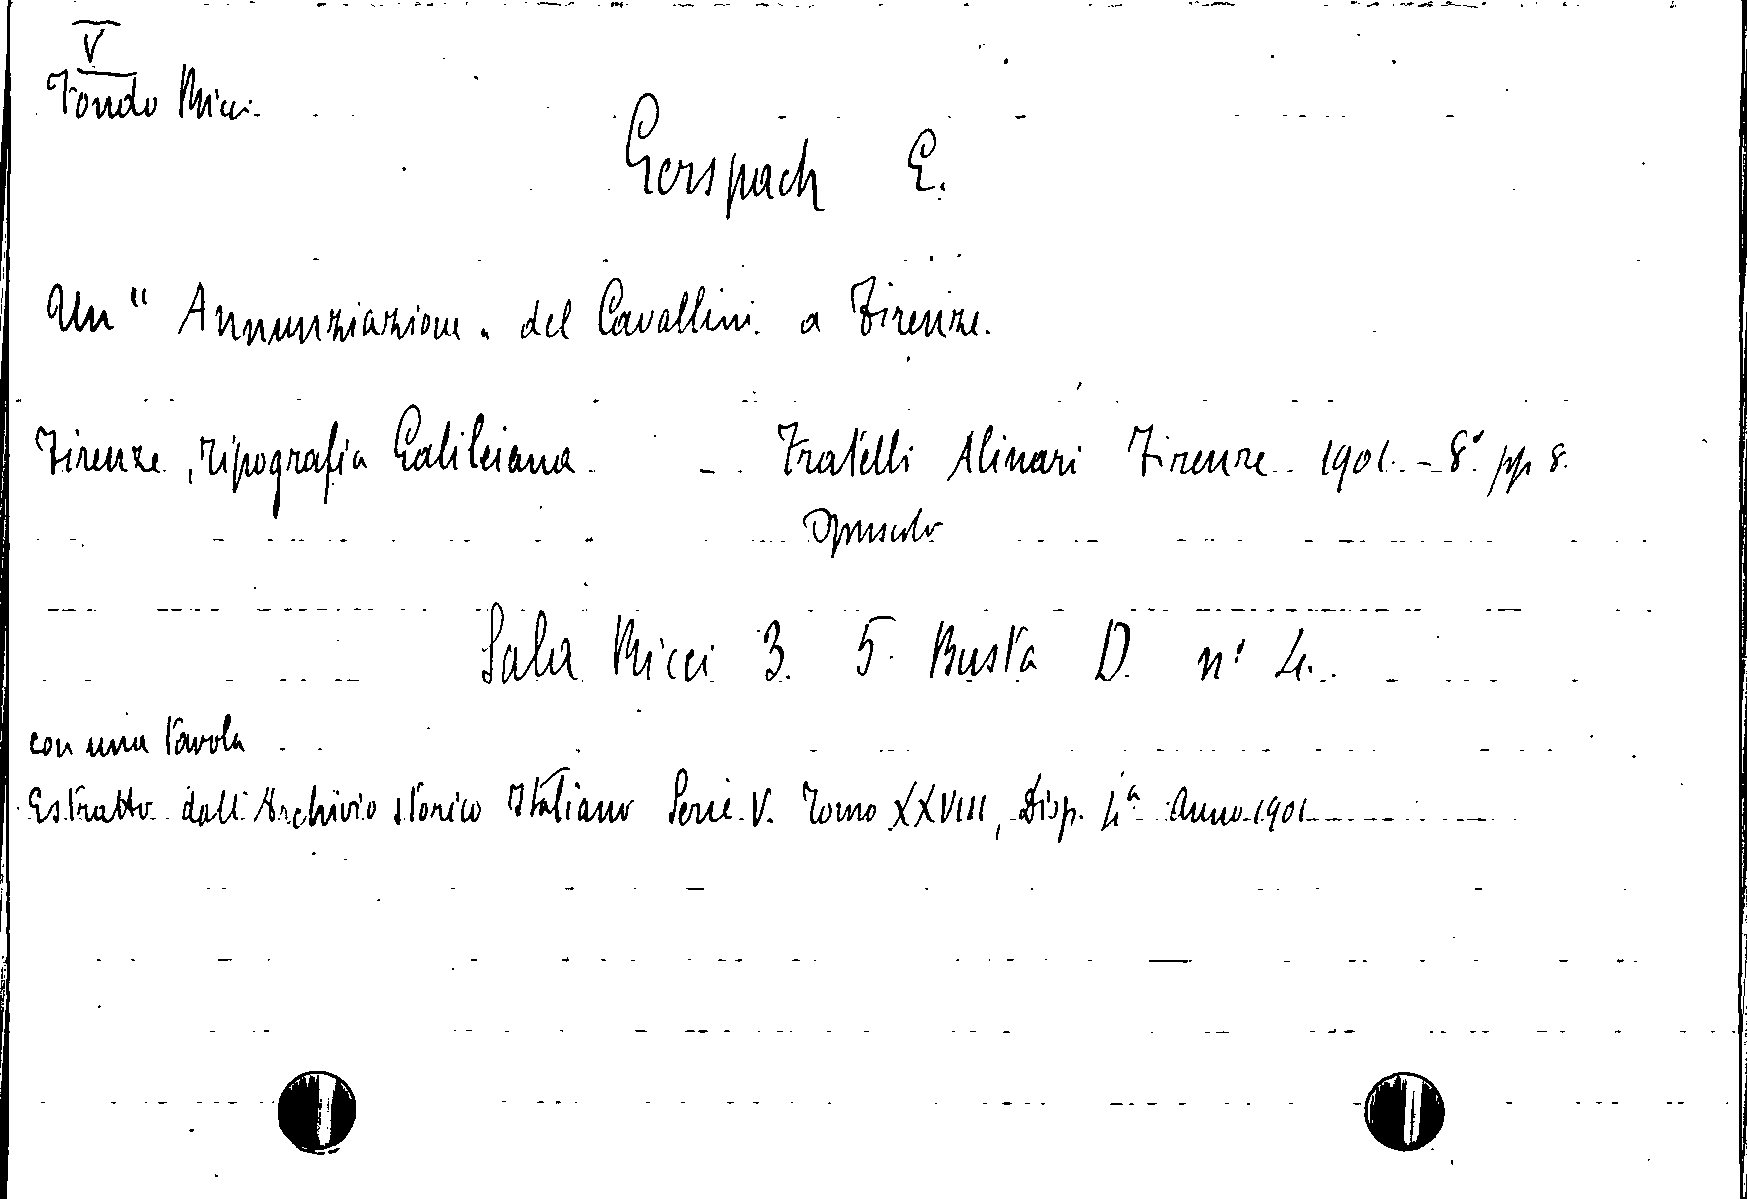 V
Fondo Ricci.
Gerspach E.
Un "Annunziazione" del Cavallini a Firenze.
Firenze, Tipografia Galileiana - Fratelli Alinari Firenze 1901. - 8° pp 8.
Opuscolo
Sala Ricci 3. 5. Busta D. n° 4.
con una tavola
Estratto dall'Archivio storico Italiano Serie V. Tomo XXVIII, Disp. 4ª Anno 1901